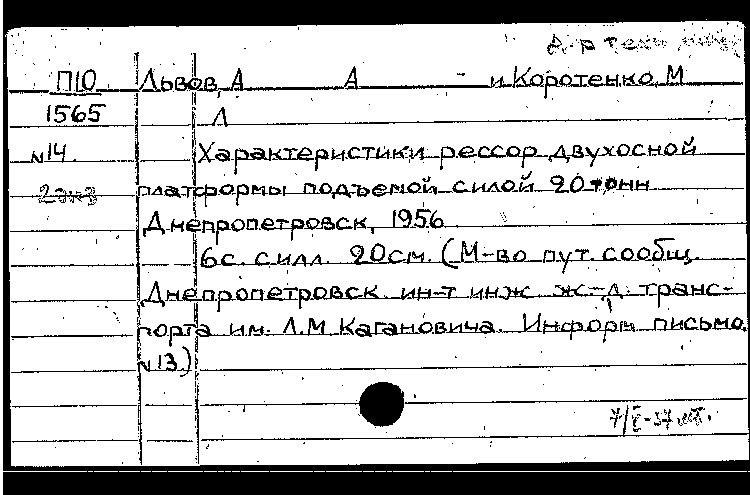 П10 Львов, А А и Коротенко, М
1565 Л
N14. Характеристики рессор двухосной
2 экз платформы подъемой силой 20 тонн
Днепропетровск, 1956
6 с. с илл. 20 см. (М-во пут. сообщ.
Днепропетровск. ин-т инж ж-д. транс-
порта им. Л.М Кагановича. Информ письмо.
N13)